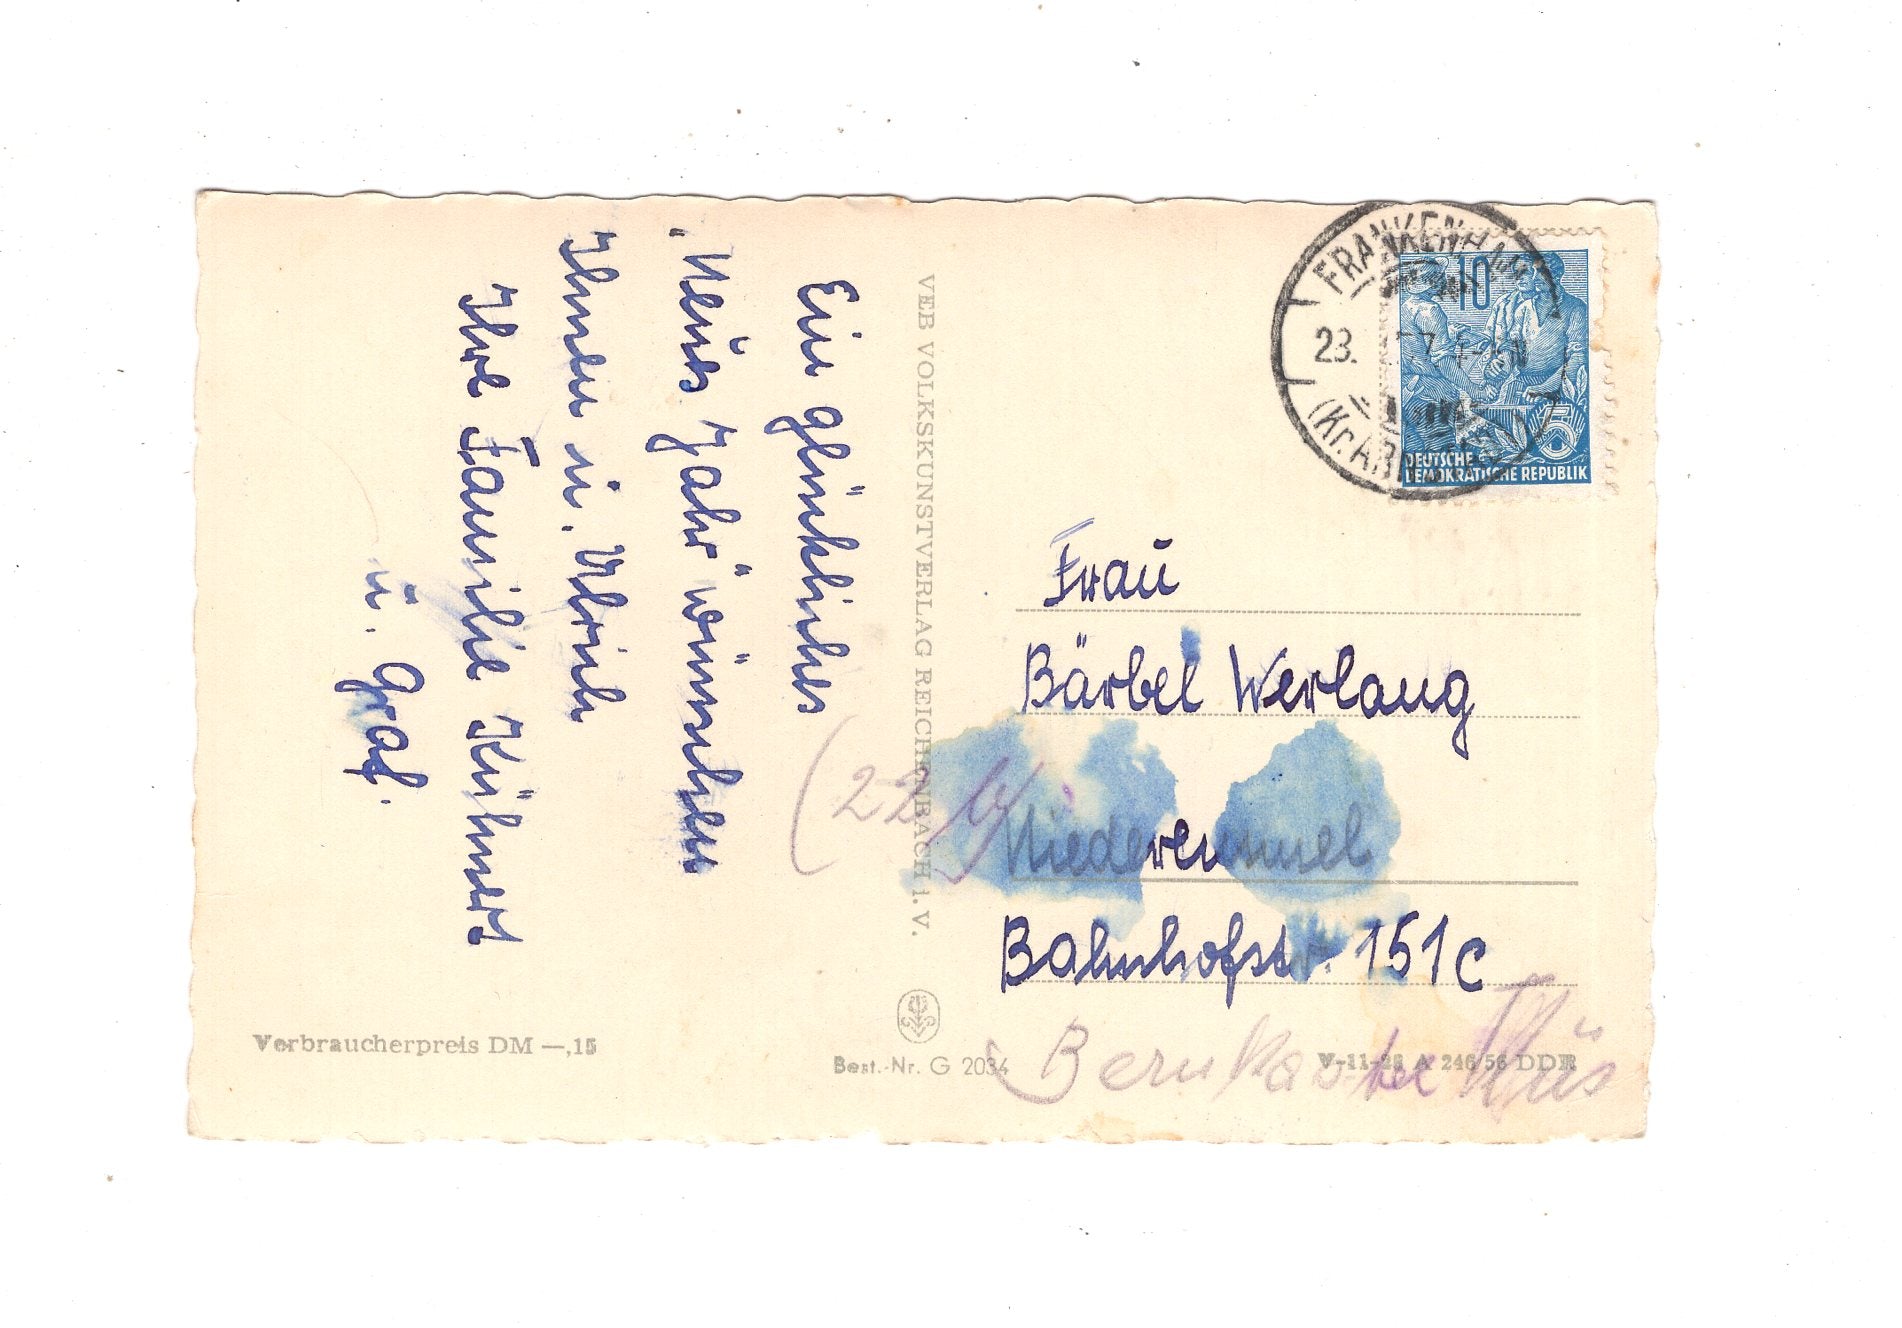 Ein glückliches
„Neues Jahr" wünschen
Ihnen u. Ulrich
Ihre Familie Kühnert
u. Graf.
Verbraucherpreis DM —,15
VEB VOLKSKUNSTVERLAG REICHENBACH i.V.
Best.-Nr. G 2034
10
5
DEUTSCHE
DEMOKRATISCHE REPUBLIK
23.
(Kr.
Frau
Bärbel Werlang
(22
Niederemmel
Bahnhofstr. 151c
Bernkastel
V-11-28 A 246/56 DDR